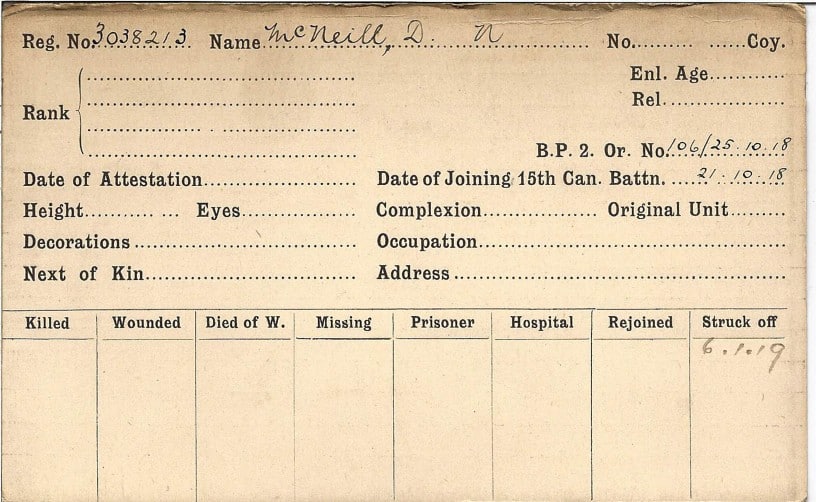 Reg. No. 3038213 Name McNeill, D. N No. Coy.
Enl. Age
Rel.
Rank
B.P. 2. Or. No. 106/25.10.18
Date of Attestation Date of Joining 15th Can. Battn. 21.10.18
Height Eyes Complexion Original Unit
Decorations Occupation
Next of Kin Address
Killed Wounded Died of W. Missing Prisoner Hospital Rejoined Struck off
6.1.19